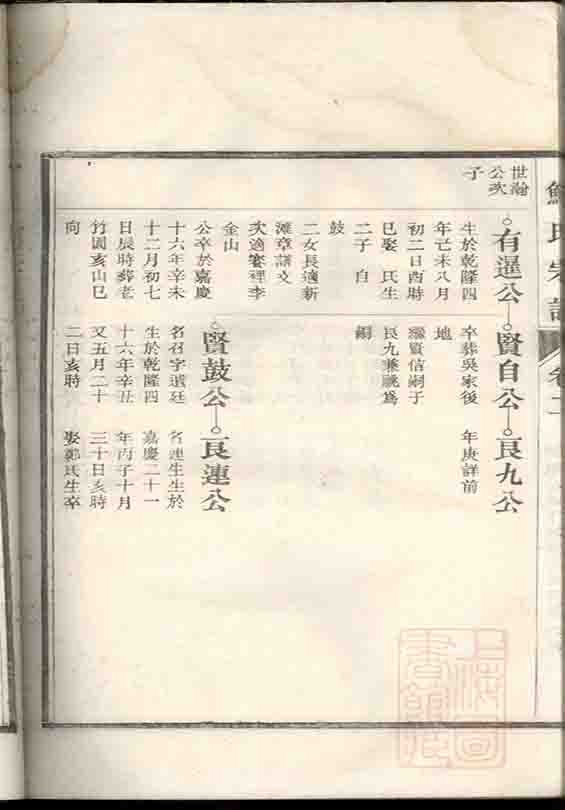 氏宗譜
卷二
世瀚
公次
子
有暹公
生於乾隆四
年己未八月
初二日酉時
已娶 氏生
二子 自
鼓
二女長適新
灘章諱文
次適寨裡李
金山
公卒於嘉慶
十六年辛未
十二月初七
日辰時葬老
竹園亥山巳
向
賢自公
卒葬吳家後
地
繼賢信嗣子
艮九兼祧爲
嗣
艮九公
年庚詳前
賢鼓公
名召字遜廷
生於乾隆四
十六年辛丑
又五月二十
二日亥時
艮連公
名連生生於
嘉慶二十一
年丙子十月
三十日亥時
娶鄭氏生卒
上海圖
書館藏